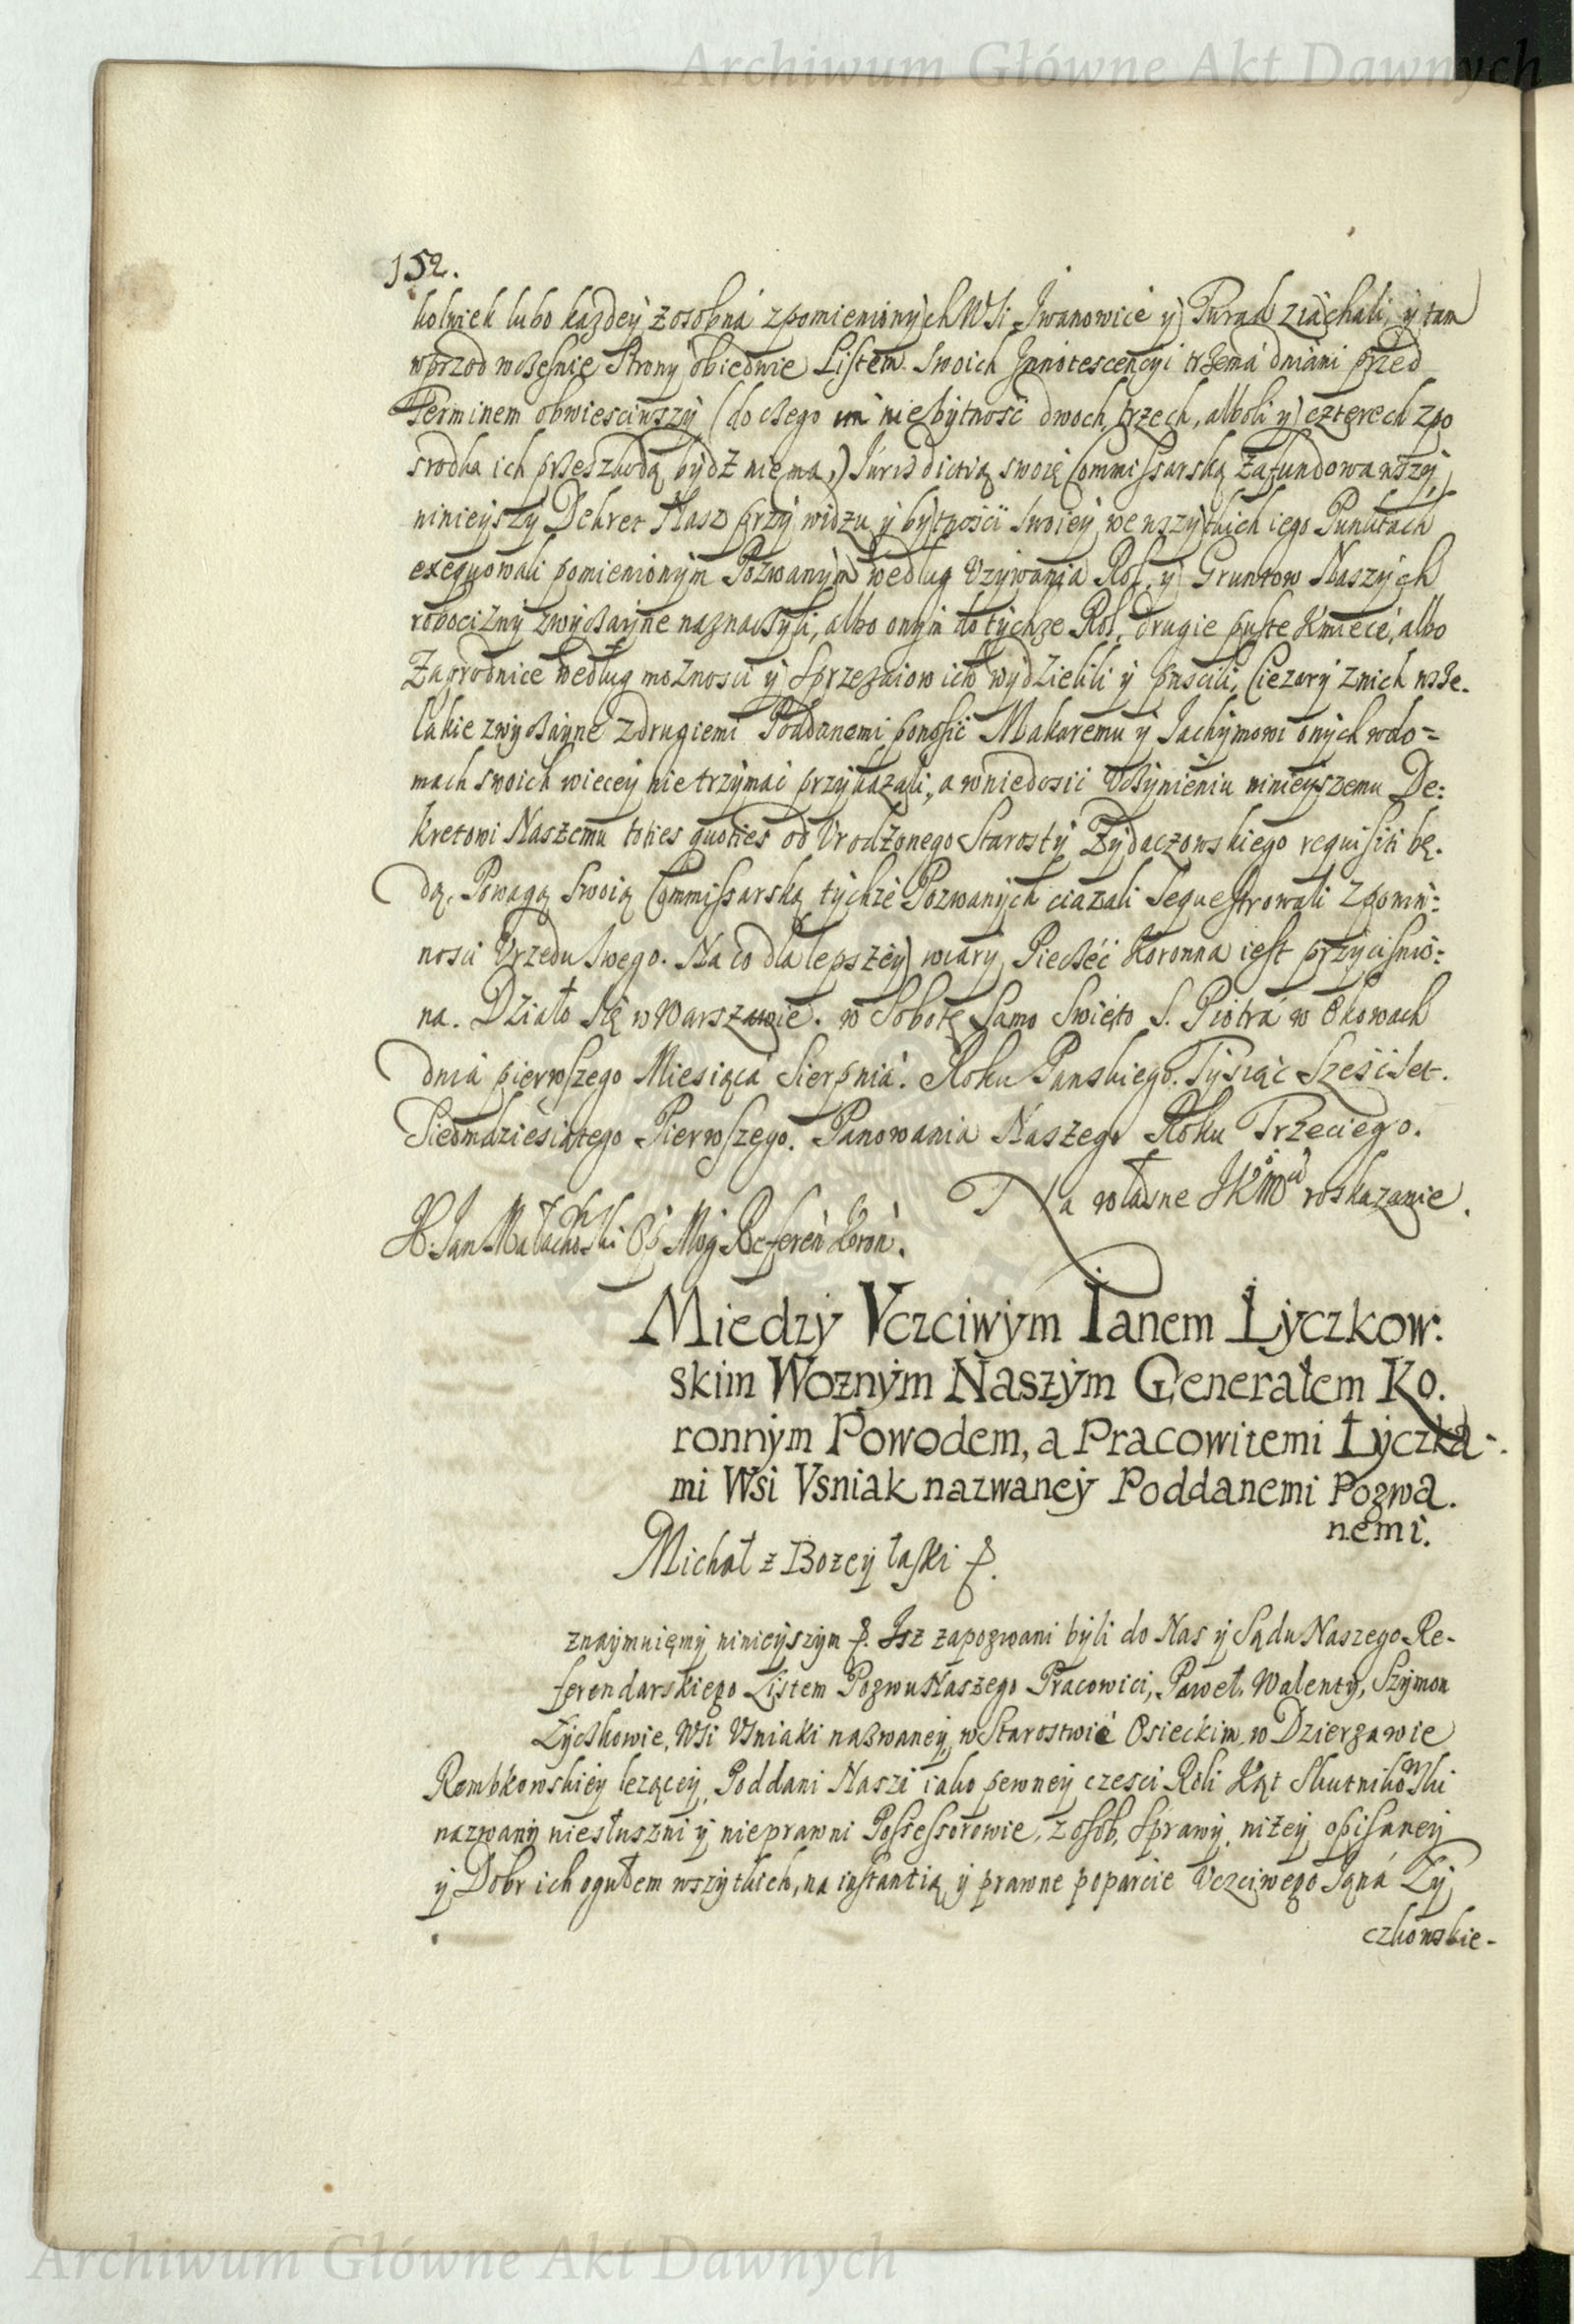 Archiwum Główne Akt Dawnych
152.
kolwiek lubo kazdey z osobná z pomienionych Wsi Jwanowice y Turad ziáchali, y tam
wprzod wczesnie Strony obiedwie Listem Swoich Jnnotescencyi trzema dniami przed
Terminem obwiesciwszy (do czego im niebytność dwoch, trzech, alboli y czterech z po
srodka ich przeszkodą bydź niema,) Jurisdictią swoię Commissarską zafundowawszy,
ninieyszy Dekret Nasz przy widzu y bytnosci Swoiey, we wszytkich iego Punktach
exequowali pomienionym Pozwanym według Vzywania Rol, y Gruntow Naszych
robocizny zwyczayne naznaczyli, albo onym do tychze Rol, drugie puste Kmiece, albo
Zagrodnice według moznosci y Sprzezaiow ich wydzielili y puscili, Ciezary z nich wsze-
lakie zwyczayne z drugiemi Poddanemi ponosić Makaremu y Jachymowi onych w do=
mach swoich wiecey nie trzymać przykazali, a w niedosić Vczynieniu ninieyszemu De:
kretowi Naszemu toties quoties od Vrodzonego Starosty Zydaczowskiego requisiti bę.
dą, Powagą Swoią Commissarską tychze Pozwanych ciązali Sequestrowali z powin:
nosci Vrzedu Swego. Na co dla lepszey wiary, Pieczęć Koronna iest przycisnio:
na. Działo się w Warszawie. w Sobotę Samo Swięto S. Piotrá w Okowach
dnia pierwszego Miesiąca Sierpnia. Roku Panskiego. Tysiąc Sześćset.
Siedmdziesiątego Pierwszego. Panowania Naszego Roku Trzeciego.
Na własne JKMci roskazanie.
H. Jan Małachowski Op. Mog. Referen Koron.
Miedzy Vczciwym Janem Łyczkow:
skim Woznym Naszym Generałem Ko.
ronnym Powodem, a Pracowitemi Łyczka-
mi Wsi Vsniak nazwaney Poddanemi Pozwa.
nemi.
Michał z Bozey łaski p.
znaymuięmy ninieyszym p. Jsz zapozwani byli do Nas y Sądu Naszego Re-
ferendarskiego Listem Pozwu Naszego Pracowici, Paweł, Walenty, Szymon
Łyczkowie, Wsi Vsniaki nazwaney, w Starostwie Osieckim, w Dzierzawie
Rembkowskiey lezącey, Poddani Naszi iako pewney czesci Roli Kąt Skutnikowski
nazwany niesłuszni y nieprawni Possessorowie, z osob, Sprawy, niżey opisaney
y Dobr ich ogułem wszytkich, na instantią y prawne poparcie Vczciwego Janá Ły
czkowskie-
Archiwum Główne Akt Dawnych